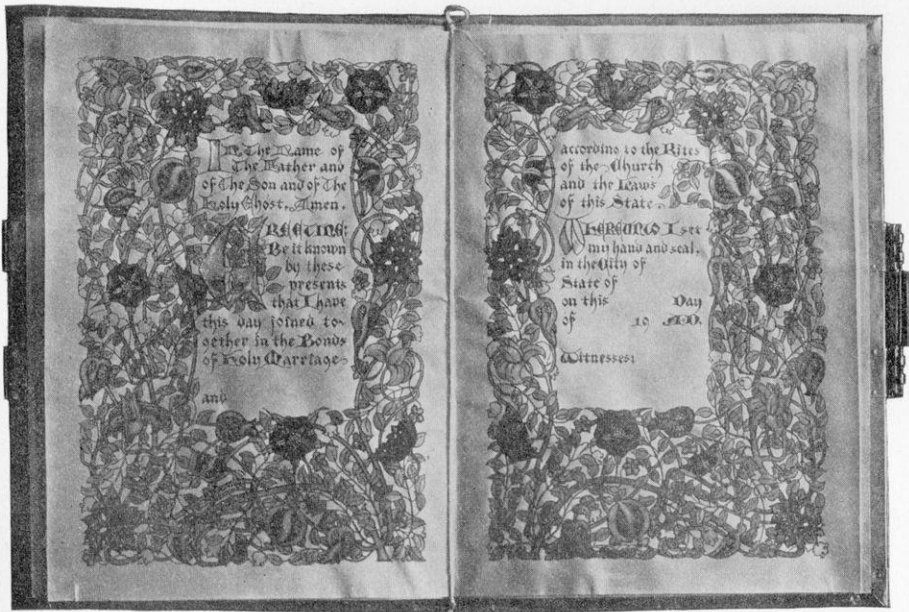 In The Name of
The Father and
of The Son and of The
Holy Ghost, Amen.
GREETING:
Be it known
by these
presents
that I have
this day joined to-
gether in the Bonds
of Holy Marriage
and
according to the Rites
of the Church
and the Laws
of this State.
WHEREUNTO I set
my hand and seal,
in the City of
State of
on this Day
of 19 A.D.
Witnesses: